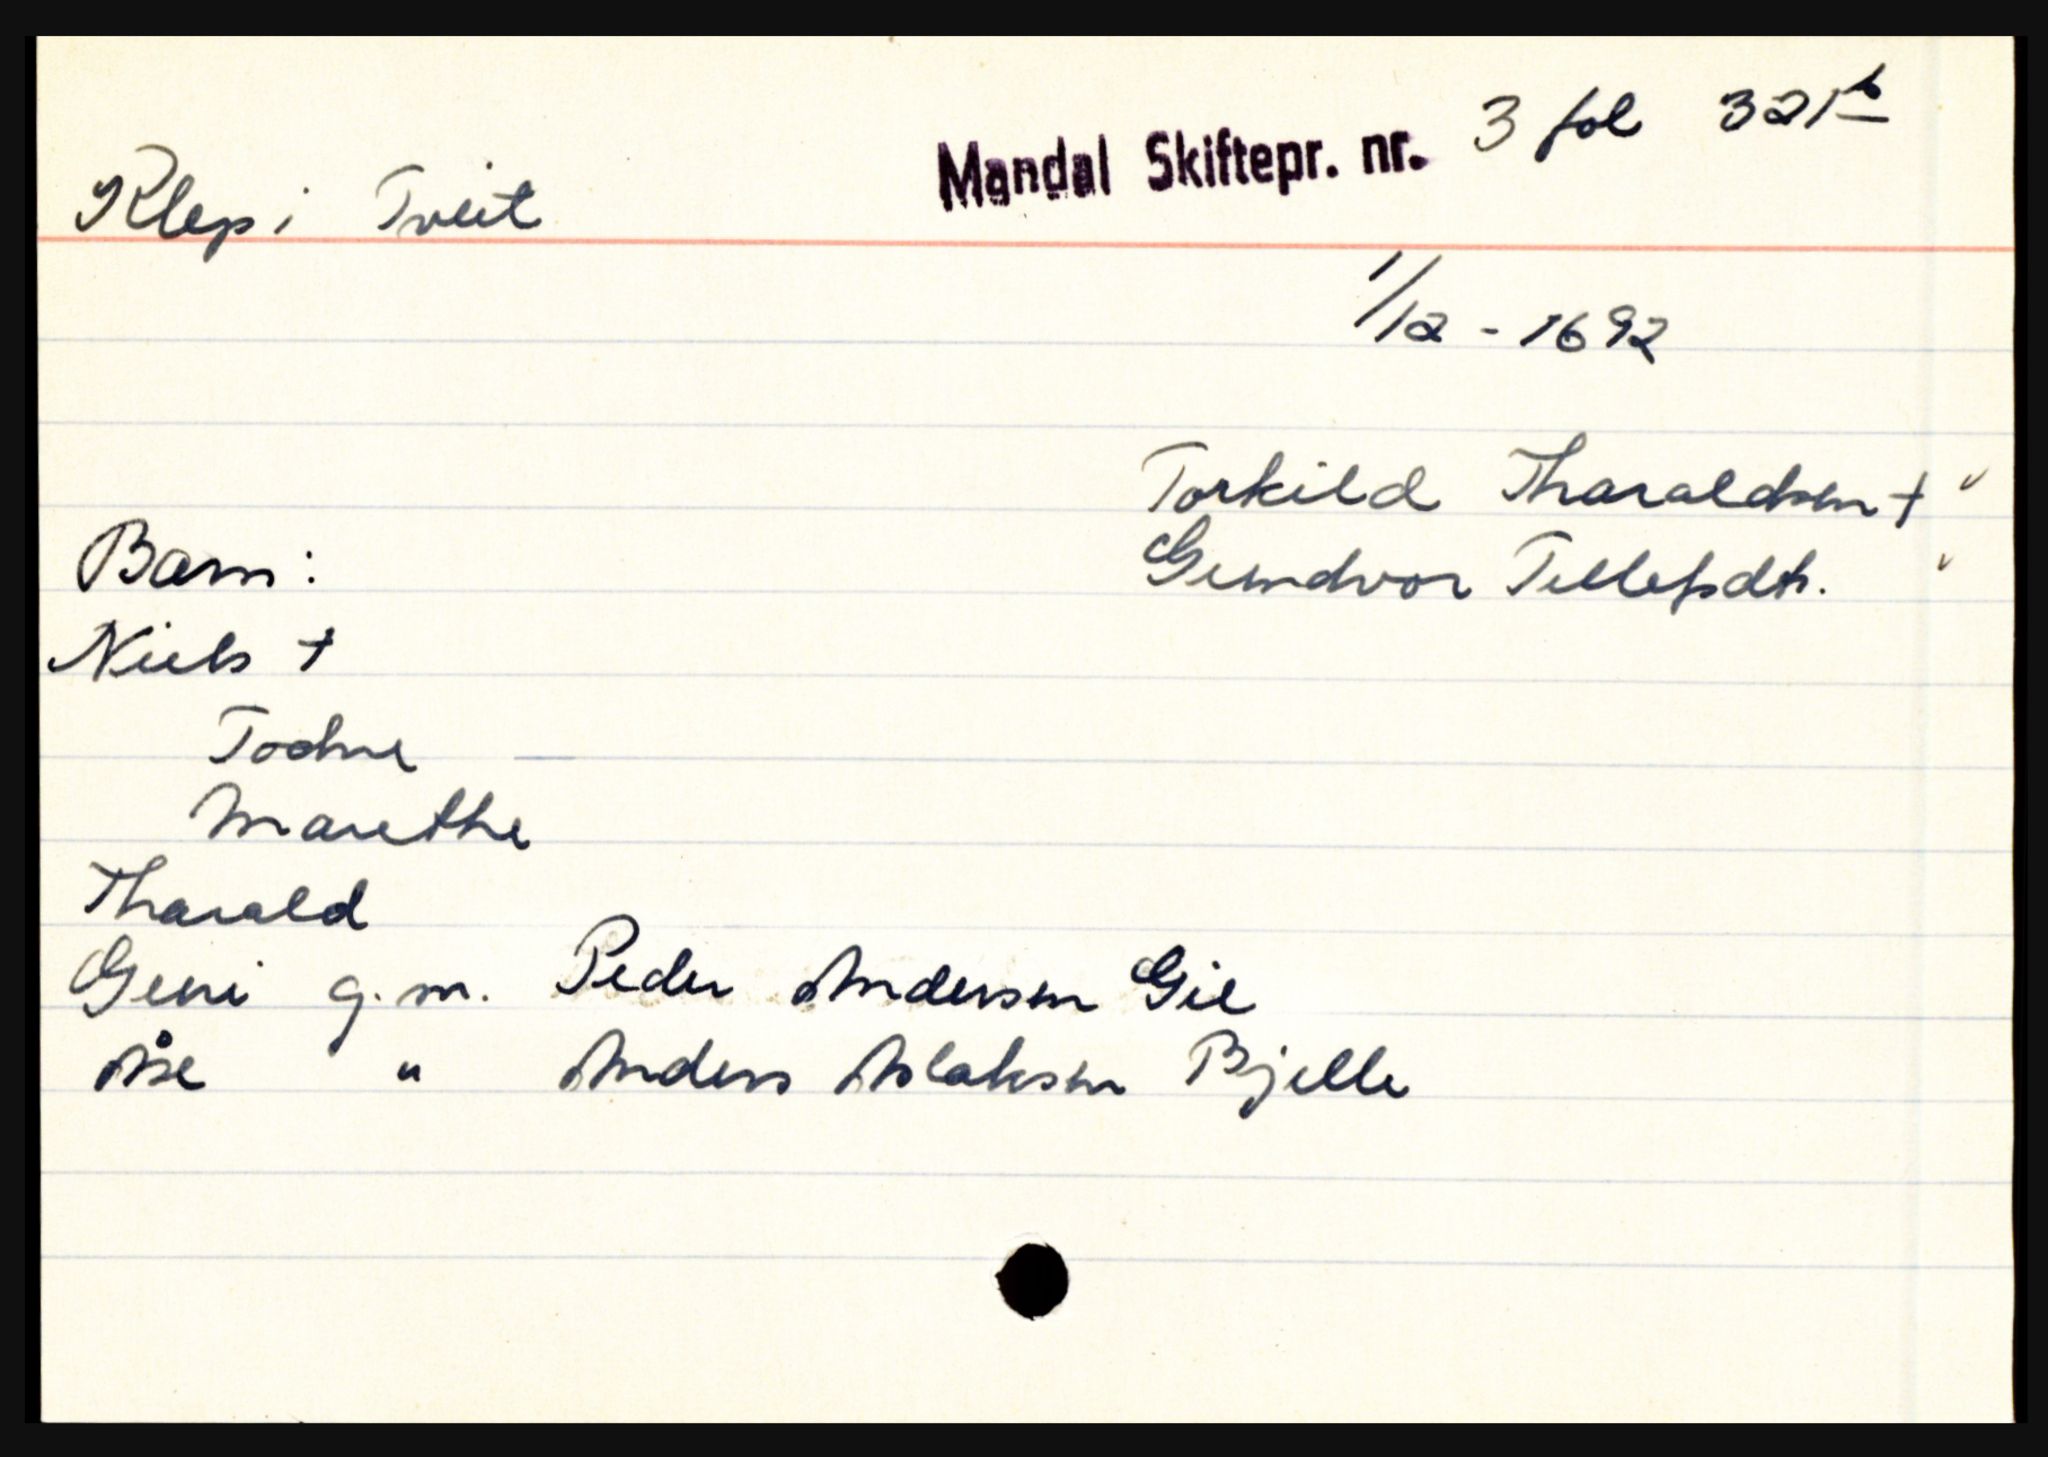 Mandal Skiftepr. nr. 3 fol 321b
Klep i Tveit
1/12 - 1692
Torkild Tharaldsen +
Gundvor Tellefsdtr.
Barn:
Niels +
Todne
Marethe
Tharald
Guri g.m. Peder Andersen Gil
Åse " Anders Aslaksen Bjelle